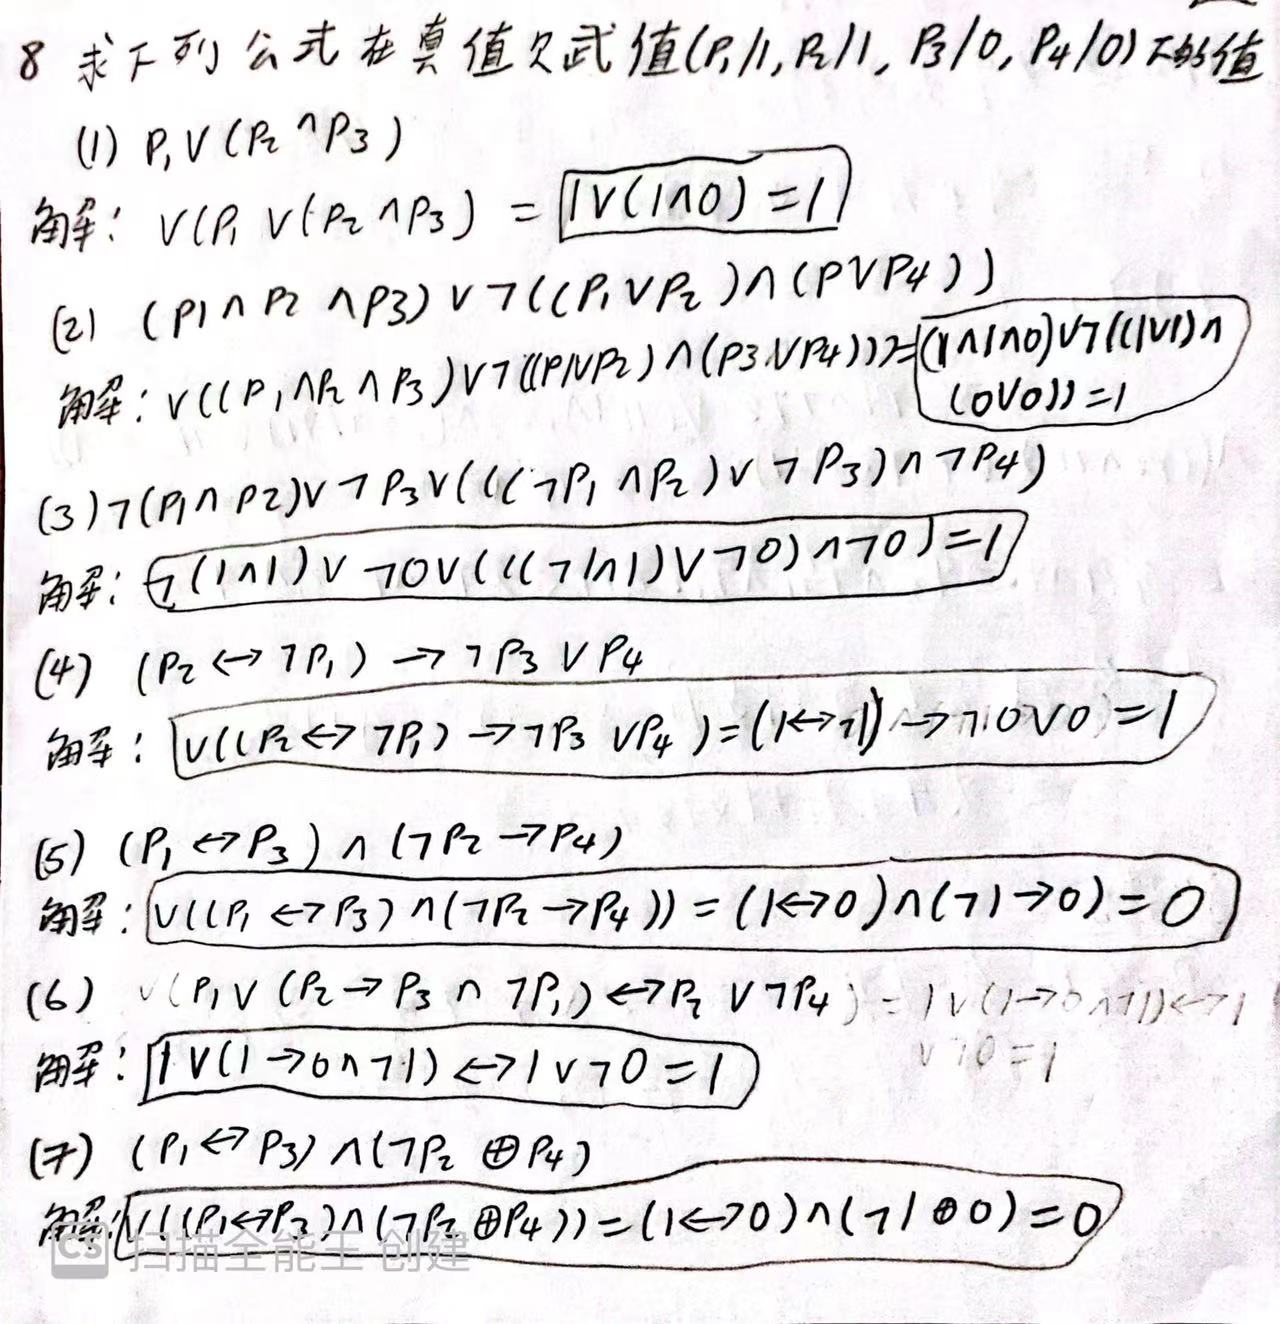 8 求下列公式在真值欠武值(P₁/1, P₂/1, P₃/0, P₄/0)下的值
(1) P₁∨(P₂∧P₃)
解: v(P₁∨(P₂∧P₃) = 1∨(1∧0)=1
(2) (P₁∧P₂∧P₃)∨¬((P₁∨P₂)∧(P∨P₄))
解: v((P₁∧P₂∧P₃)∨¬((P₁∨P₂)∧(P₃∨P₄)))=(1∧1∧0)∨¬((1∨1)∧
(0∨0))=1
(3)¬(P₁∧P2)∨¬P₃∨(((¬P₁∧P₂)∨¬P₃)∧¬P₄)
解: ¬(1∧1)∨¬0∨(((¬1∧1)∨¬0)∧¬0)=1
(4) (P₂↔¬P₁)→¬P₃∨P₄
解: v((P₂↔¬P₁)→¬P₃∨P₄)=(1↔¬1)→¬0∨0=1
(5) (P₁↔P₃)∧(¬P₂→P₄)
解: v((P₁↔P₃)∧(¬P₂→P₄))=(1↔0)∧(¬1→0)=0
(6) v(P₁∨(P₂→P₃∧¬P₁)↔P₂∨¬P₄)=1∨(1→0∧¬1)↔1
∨¬0=1
解: 1∨(1→0∧¬1)↔1∨¬0=1
(7) (P₁↔P₃)∧(¬P₂⊕P₄)
解: v((P₁↔P₃)∧(¬P₂⊕P₄))=(1↔0)∧(¬1⊕0)=0
CS 扫描全能王 创建